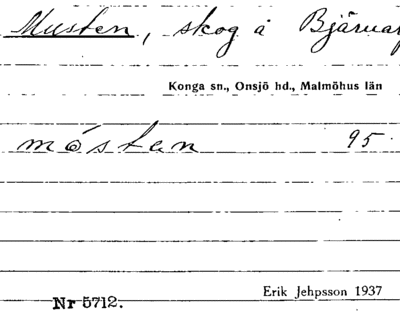 Musten, skog å Bjärnar
Konga sn., Onsjö hd., Malmöhus län
mó̀stan 95
Erik Jehpsson 1937
Nr 5712.